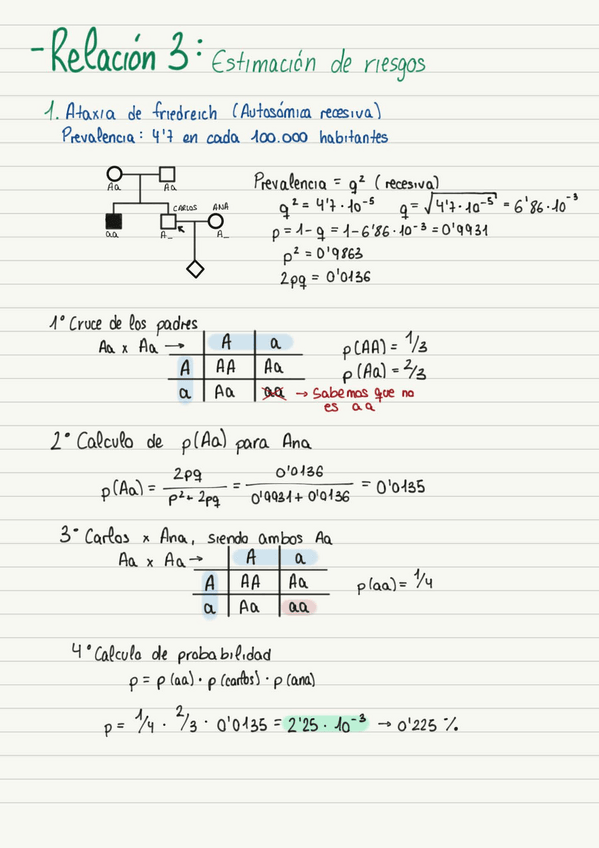 -Relación 3: Estimación de riesgos
1. Ataxia de friedreich (Autosómica recesiva)
Prevalencia: 4'7 en cada 100.000 habitantes
Aa Aa
CARLOS ANA
aa A_ A_
Prevalencia = q² (recesiva)
q² = 4'7 · 10⁻⁵ q = √4'7 · 10⁻⁵ = 6'86 · 10⁻³
p = 1 - q = 1 - 6'86 · 10⁻³ = 0'9931
p² = 0'9863
2pq = 0'0136
1° Cruce de los padres
Aa x Aa →
A a
A AA Aa
a Aa aa → Sabemos que no
es aa
p(AA) = 1/3
p(Aa) = 2/3
2° Calculo de p(Aa) para Ana
p(Aa) = 2pq / p² + 2pq = 0'0136 / 0'9931 + 0'0136 = 0'0135
3° Carlos x Ana, siendo ambos Aa
Aa x Aa →
A a
A AA Aa
a Aa aa
p(aa) = 1/4
4° Calculo de probabilidad
p = p(aa) · p(carlos) · p(ana)
p = 1/4 · 2/3 · 0'0135 = 2'25 · 10⁻³ → 0'225 %